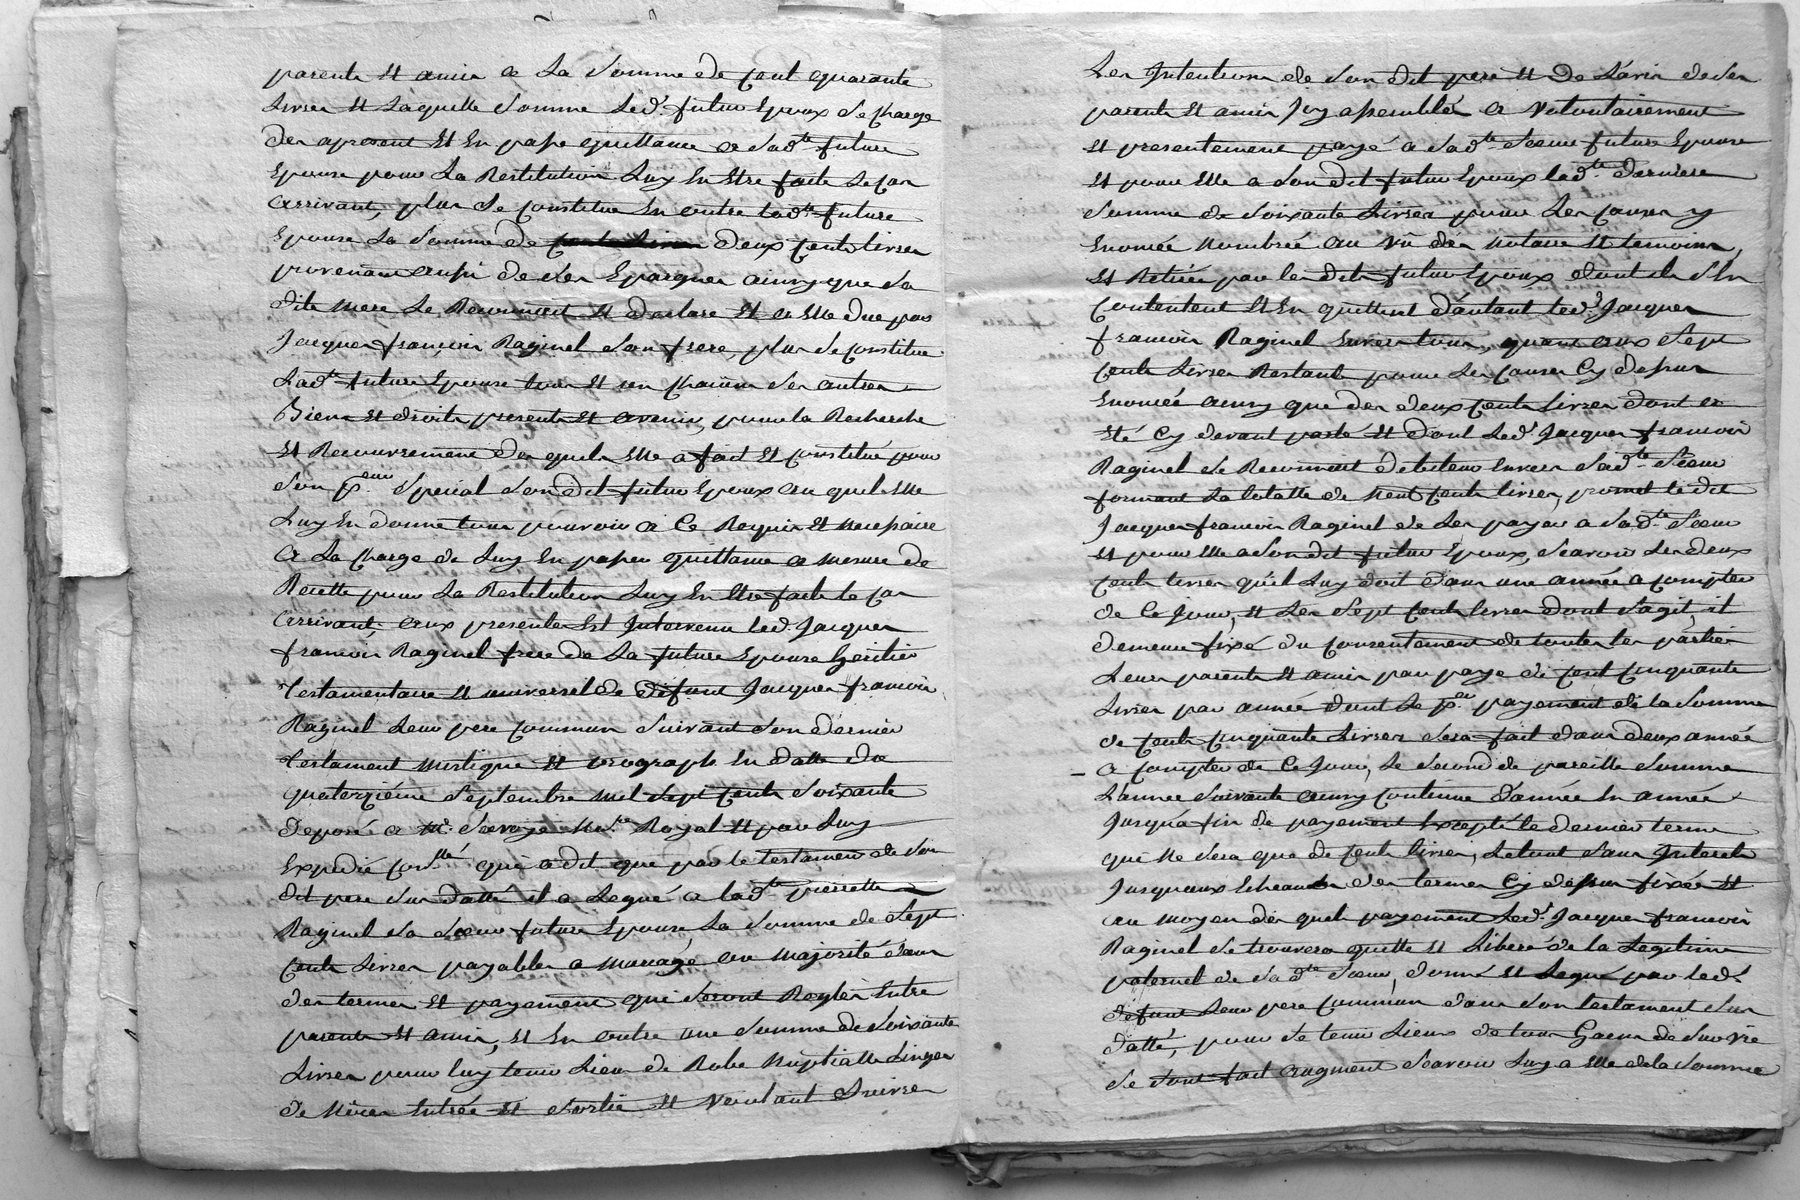 parents et amis a La Somme de cent quarante
Livres et Laquelle Somme Led.t futur Epoux Se Charge
des apresent Et En passe quittance a Sad.te future
Epouse pour La Restitution Luy En Etre faite Le cas
arrivant, plus Se Constitue En outre lad.te future
Epouse La Somme de deux Cents livres
provenant aussi de Ses Epargnes ainsy que Sa
dite mere Le Reconnoit Et declare Et a Elle due par
Jacques françois Raginel Son frere, plus Se Constitue
Lad.te future Epouse tous Et un Chacun Ses autres
Biens Et droits presents Et avenir, pour la Recherche
Et Recouvrement des quels Elle a fait Et Constitué pour
Son p.eur Special Son dit futur Epoux au quel Elle
Luy En donne tous pouvoir a Ce Requis Et necessaire
a La Charge de Luy En passer quittance a mesure de
Recette pour La Restitution Luy En Etre faite le cas
arrivant, aux presentes Est Intervenu led. Jacques
françois Raginel frere de La future Epouse heritier
testamentaire Et universel de defunt Jacques françois
Raginel Leur pere Commun Suivant Son dernier
testament mistique Et orographe En datte du
quatorziéme Septembre mil Sept Cents Soixante
deposé a M.e Royal Et par Luy
Expedié qui a dit que par le testament de Son
dit pere Sus datté il a Legué a lad.te pierrette
Raginel Sa Sœur future Epouse, La Somme de Sept
Cents Livres payables a mariage ou majorité dans
des termes Et payements qui Seront Regles Entre
parents Et amis, Et En outre une Somme de Soixante
Livres pour luy tenir Lieu de Robe Nuptialle Linges
de Entrée Et Sortie Et Voulant Suivre
Les Intentions de Son dit pere Et de L'avis de Ses
parents Et amis Icy assemblés a Volontairement
Et presentement payé a Sad.te Sœur future Epouse
Et pour Elle a Son dit futur Epoux lad.te derniere
Somme de Soixante Livres pour Les Causes y
Enoncée Nombrée au Vû des Notaire Et temoins,
Et Retirée par les dits futur Epoux dont ils S'En
Contentent Et En quittent d'autant led.t Jacques
françois Raginel Envers tous, quant aux Sept
Cents Livres Restants pour Les Causes Cy dessus
Enoncée ainsy que des deux Cents livres dont a
Eté Cy devant parlé Et dont Led.t Jacques françois
Raginel Se Reconnoit debiteur Envers Sad.te Sœur
formant La totalle de Neuf Cents livres, promet le dit
Jacques françois Raginel de Les payer a Sad.te Sœur
Et pour Elle a Son dit futur Epoux, Scavoir Les deux
Cents livres qu'il Luy doit dans une année a Compter
de Ce Jour, Et Les Sept Cents livres dont S'agit, il
demeure fixé du Consentement de toutes les parties
Leurs parents Et amis par paye de Cent Cinquante
Livres par année dont Le p.er payement de la Somme
de Cents Cinquante Livres Sera fait dans deux année
a Compter de Ce Jour, Le Second de pareille Somme
L'année Suivante ainsy Continué d'année En année
Jusqu'a fin de payement Excepté le dernier terme
qui Ne Sera que de Cents livres, Le tout Sans Interets
Jusqu'aux Echeances des termes Cy dessus fixée Et
au moyen des quels payement Led.t Jacques françois
Raginel Se trouvera quitte Et Liberé de la Legitime
paternel de Sad.te Sœur, donné Et Legué par led.t
defunt Leur pere Commun dans Son testament Sus
datté, pour Se tenir Lieux de tous Gains de Survie
Se Sont fait augment Scavoir Luy a Elle de la Somme